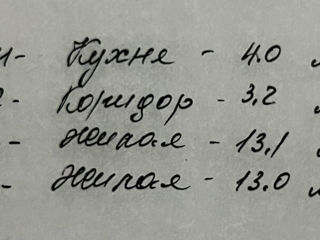 - Кухня - 4.0
- Коридор - 3,2
- жилая - 13,1
- жилая - 13.0